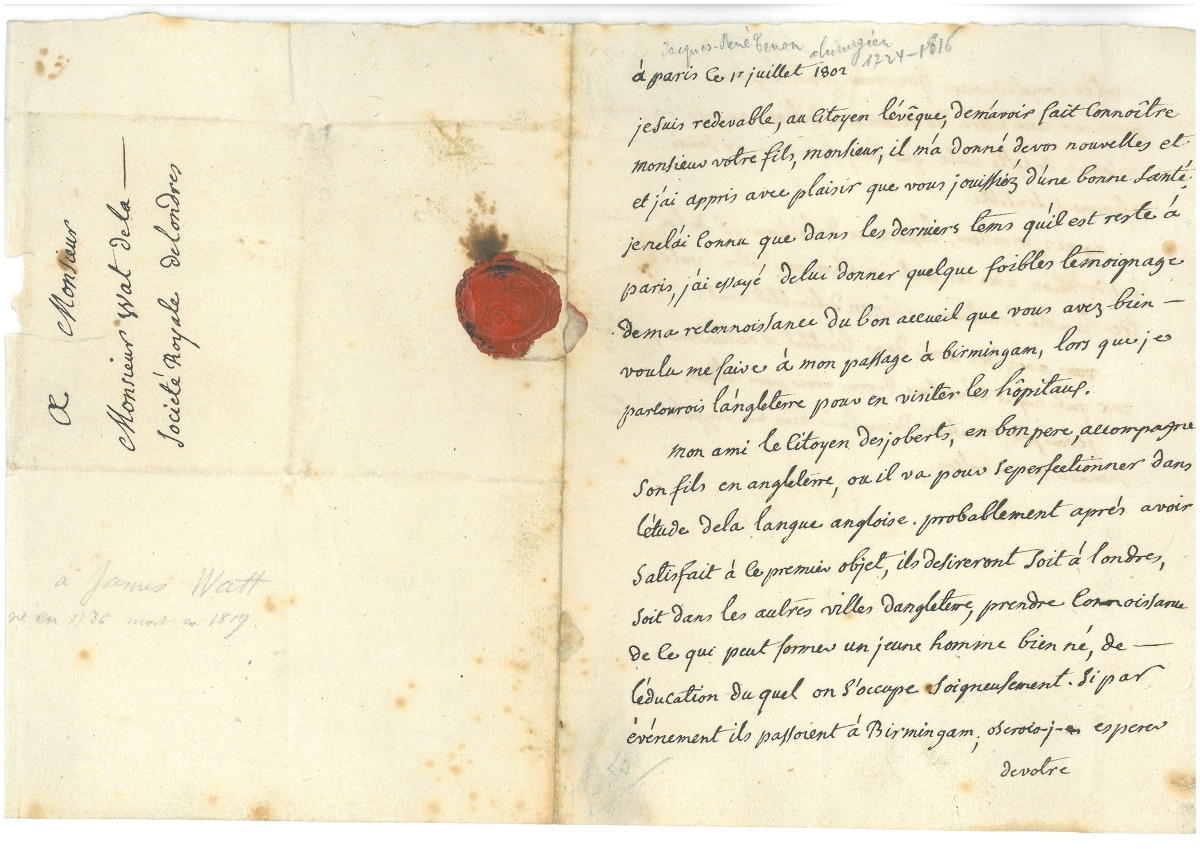 a Monsieur
Monsieur Wat dela —
Société Royale delondres
à James Watt
né en 1736 mort en 1819.
Jacques-René Tenon chirurgien
1724-1816
à paris ce 1r juillet 1802
je suis redevable, au Citoyen lévêque, dem'avoir fait Connoître
monsieur votre fils, monsieur, il m'a donné devos nouvelles et
et j'ai appris avec plaisir que vous jouissiéz d'une bonne Santé.
jenelái Connu que dans les derniers tems qu'il est resté à
paris, j'ai essayé delui donner quelque foibles temoignage
dema reconnoissance du bon accueil que vous avez bien —
voulu me faire à mon passage à birmingam, lors que je
parcourois l'angleterre pour en visiter les hôpitaux.
mon ami le Citoyen desjoberts, en bon pere, accompagne
Son fils en angleterre, ou il va pour Seperfectionner dans
l'étude dela langue angloise. probablement aprés avoir
Satisfait à ce premier objet, ils desireront Soit à londres,
Soit dans les autres villes d'angleterre, prendre Connoissance
de ce qui peut former un jeune homme bien né, de —
l'éducation du quel on S'occupe Soigneusement. Si par
événement ils passoient à Birmingam, oserois-je esperer
devotre